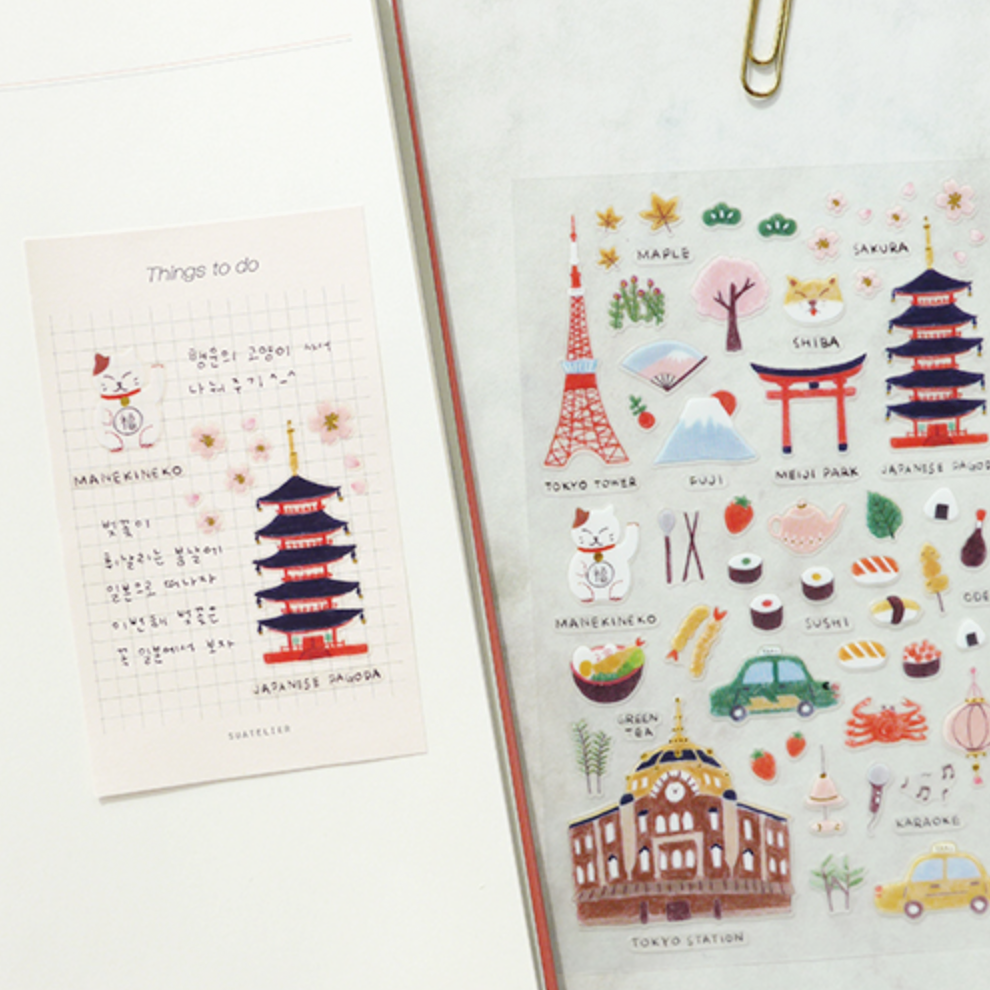 Things to do
행운의 고양이 사서
나눠주기 ^_^
MANEKINEKO
벚꽃이
휘날리는 봄날에
일본으로 떠나자
이번해 벚꽃은
꼭 일본에서 보자
JAPANESE PAGODA
SUATELIER
MAPLE
SAKURA
SHIBA
TOKYO TOWER
FUJI
MEIJI PARK
JAPANESE PAGOD
MANEKINEKO
福
SUSHI
ODE
GREEN
TEA
TAXI
KARAOKE
TAXI
TOKYO STATION